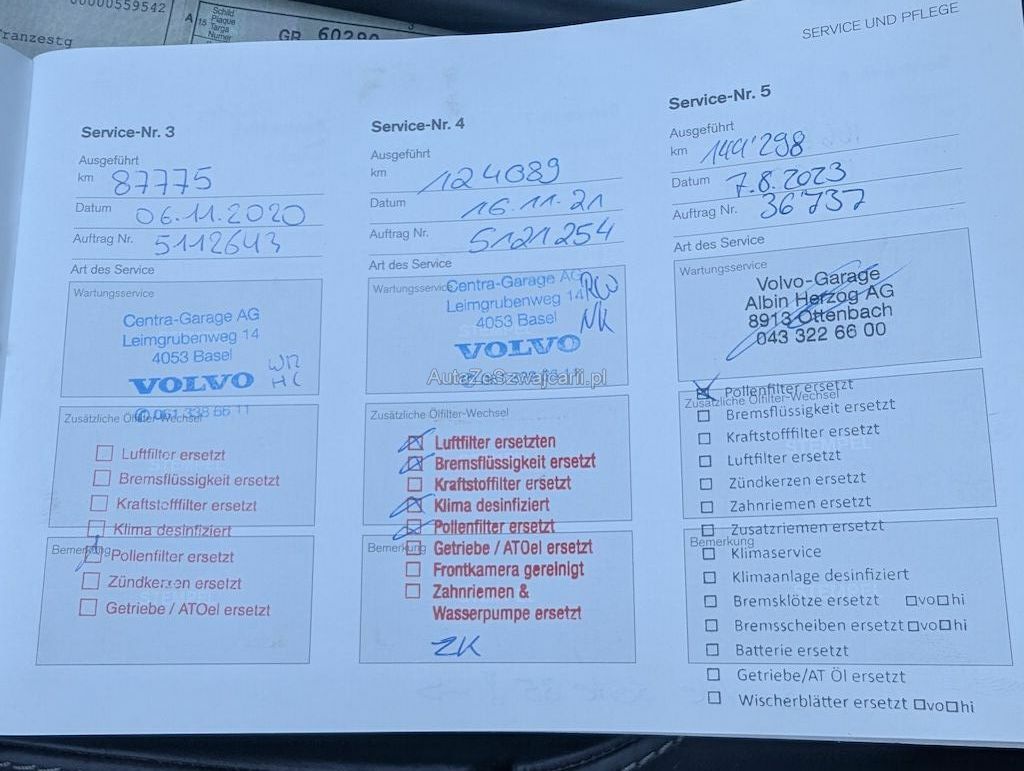 00000559542
ranzestg
A
15
Schild
Plaque
Targa
Numer
GR 60290
SERVICE UND PFLEGE
Service-Nr. 3
Ausgeführt
km 87775
Datum 06.11.2020
Auftrag Nr. 5112643
Art des Service
Wartungsservice
Centra-Garage AG
Leimgrubenweg 14
4053 Basel
VOLVO
061 338 66 11
WR
HC
Zusätzliche Ölfilter-Wechsel
Luftfilter ersetzt
Bremsflüssigkeit ersetzt
Kraftstofffilter ersetzt
Klima desinfiziert
Bemerkung
Pollenfilter ersetzt
Zündkerzen ersetzt
Getriebe / ATOel ersetzt
Service-Nr. 4
Ausgeführt
km 124089
Datum 16.11.21
Auftrag Nr. 5121254
Art des Service
Wartungsservice
Centra-Garage AG
Leimgrubenweg 14
4053 Basel
VOLVO
RW
NK
AutaZeSzwajcarii.pl
Zusätzliche Ölfilter-Wechsel
Luftfilter ersetzten
Bremsflüssigkeit ersetzt
Kraftstoffilter ersetzt
Klima desinfiziert
Pollenfilter ersetzt
Bemerkung
Getriebe / ATOel ersetzt
Frontkamera gereinigt
Zahnriemen &
Wasserpumpe ersetzt
ZK
Service-Nr. 5
Ausgeführt
km 144'298
Datum 7.8.2023
Auftrag Nr. 36'737
Art des Service
Wartungsservice
Volvo-Garage
Albin Herzog AG
8913 Ottenbach
043 322 66 00
Pollenfilter ersetzt
Zusätzliche Ölfilter-Wechsel
Bremsflüssigkeit ersetzt
Kraftstofffilter ersetzt
Luftfilter ersetzt
Zündkerzen ersetzt
Zahnriemen ersetzt
Zusatzriemen ersetzt
Bemerkung
Klimaservice
Klimaanlage desinfiziert
Bremsklötze ersetzt vo hi
Bremsscheiben ersetzt vo hi
Batterie ersetzt
Getriebe/AT Öl ersetzt
Wischerblätter ersetzt vo hi